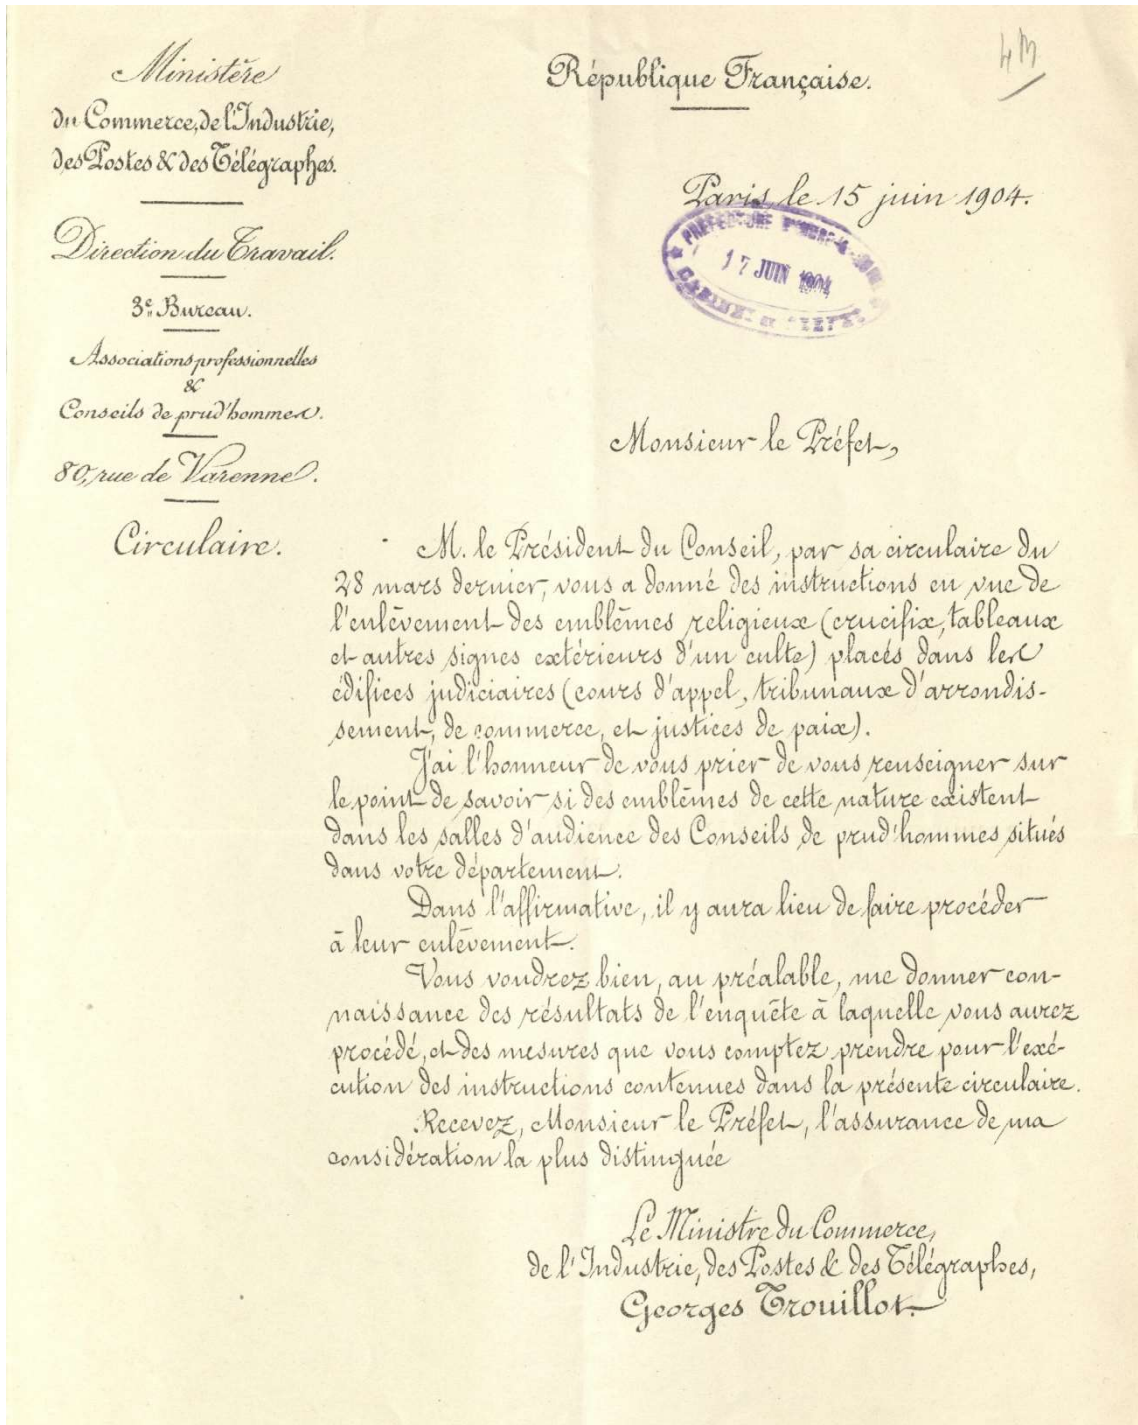 Ministère
du Commerce, de l'Industrie,
des Postes & des Télégraphes.
Direction du Travail.
3e Bureau.
Associations professionnelles
&
Conseils de prud'hommes.
80, rue de Varenne.
Circulaire.
4M
République Française.
Paris, le 15 juin 1904.
PRÉFECTURE
17 JUIN 1904
CABINET
Monsieur le Préfet,
M. le Président du Conseil, par sa circulaire du
28 mars dernier, vous a donné des instructions en vue de
l'enlèvement des emblèmes religieux (crucifix, tableaux
et autres signes extérieurs d'un culte) placés dans les
édifices judiciaires (cours d'appel, tribunaux d'arrondis-
sement, de commerce, et justices de paix).
J'ai l'honneur de vous prier de vous renseigner sur
le point de savoir si des emblèmes de cette nature existent
dans les salles d'audience des Conseils de prud'hommes situés
dans votre département.
Dans l'affirmative, il y aura lieu de faire procéder
à leur enlèvement.
Vous voudrez bien, au préalable, me donner con-
naissance des résultats de l'enquête à laquelle vous aurez
procédé, et des mesures que vous comptez prendre pour l'exé-
cution des instructions contenues dans la présente circulaire.
Recevez, Monsieur le Préfet, l'assurance de ma
considération la plus distinguée
Le Ministre du Commerce,
de l'Industrie, des Postes & des Télégraphes,
Georges Trouillot.